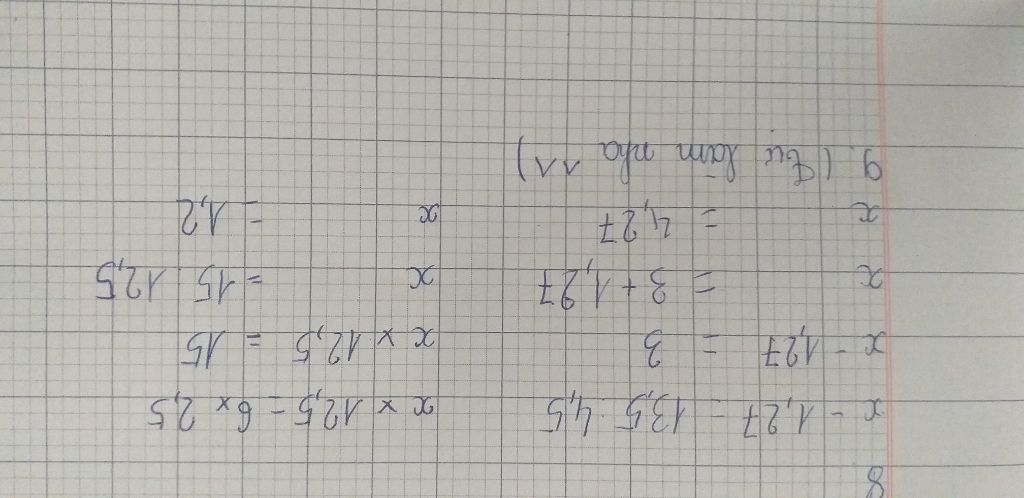 8
x - 1,27 = 13,5 : 4,5    x × 12,5 = 6 × 2,5
x - 1,27 = 3    x × 12,5 = 15
x = 3 + 1,27    x = 15 : 12,5
x = 4,27    x = 1,2
9. (Tự làm nha ^^)